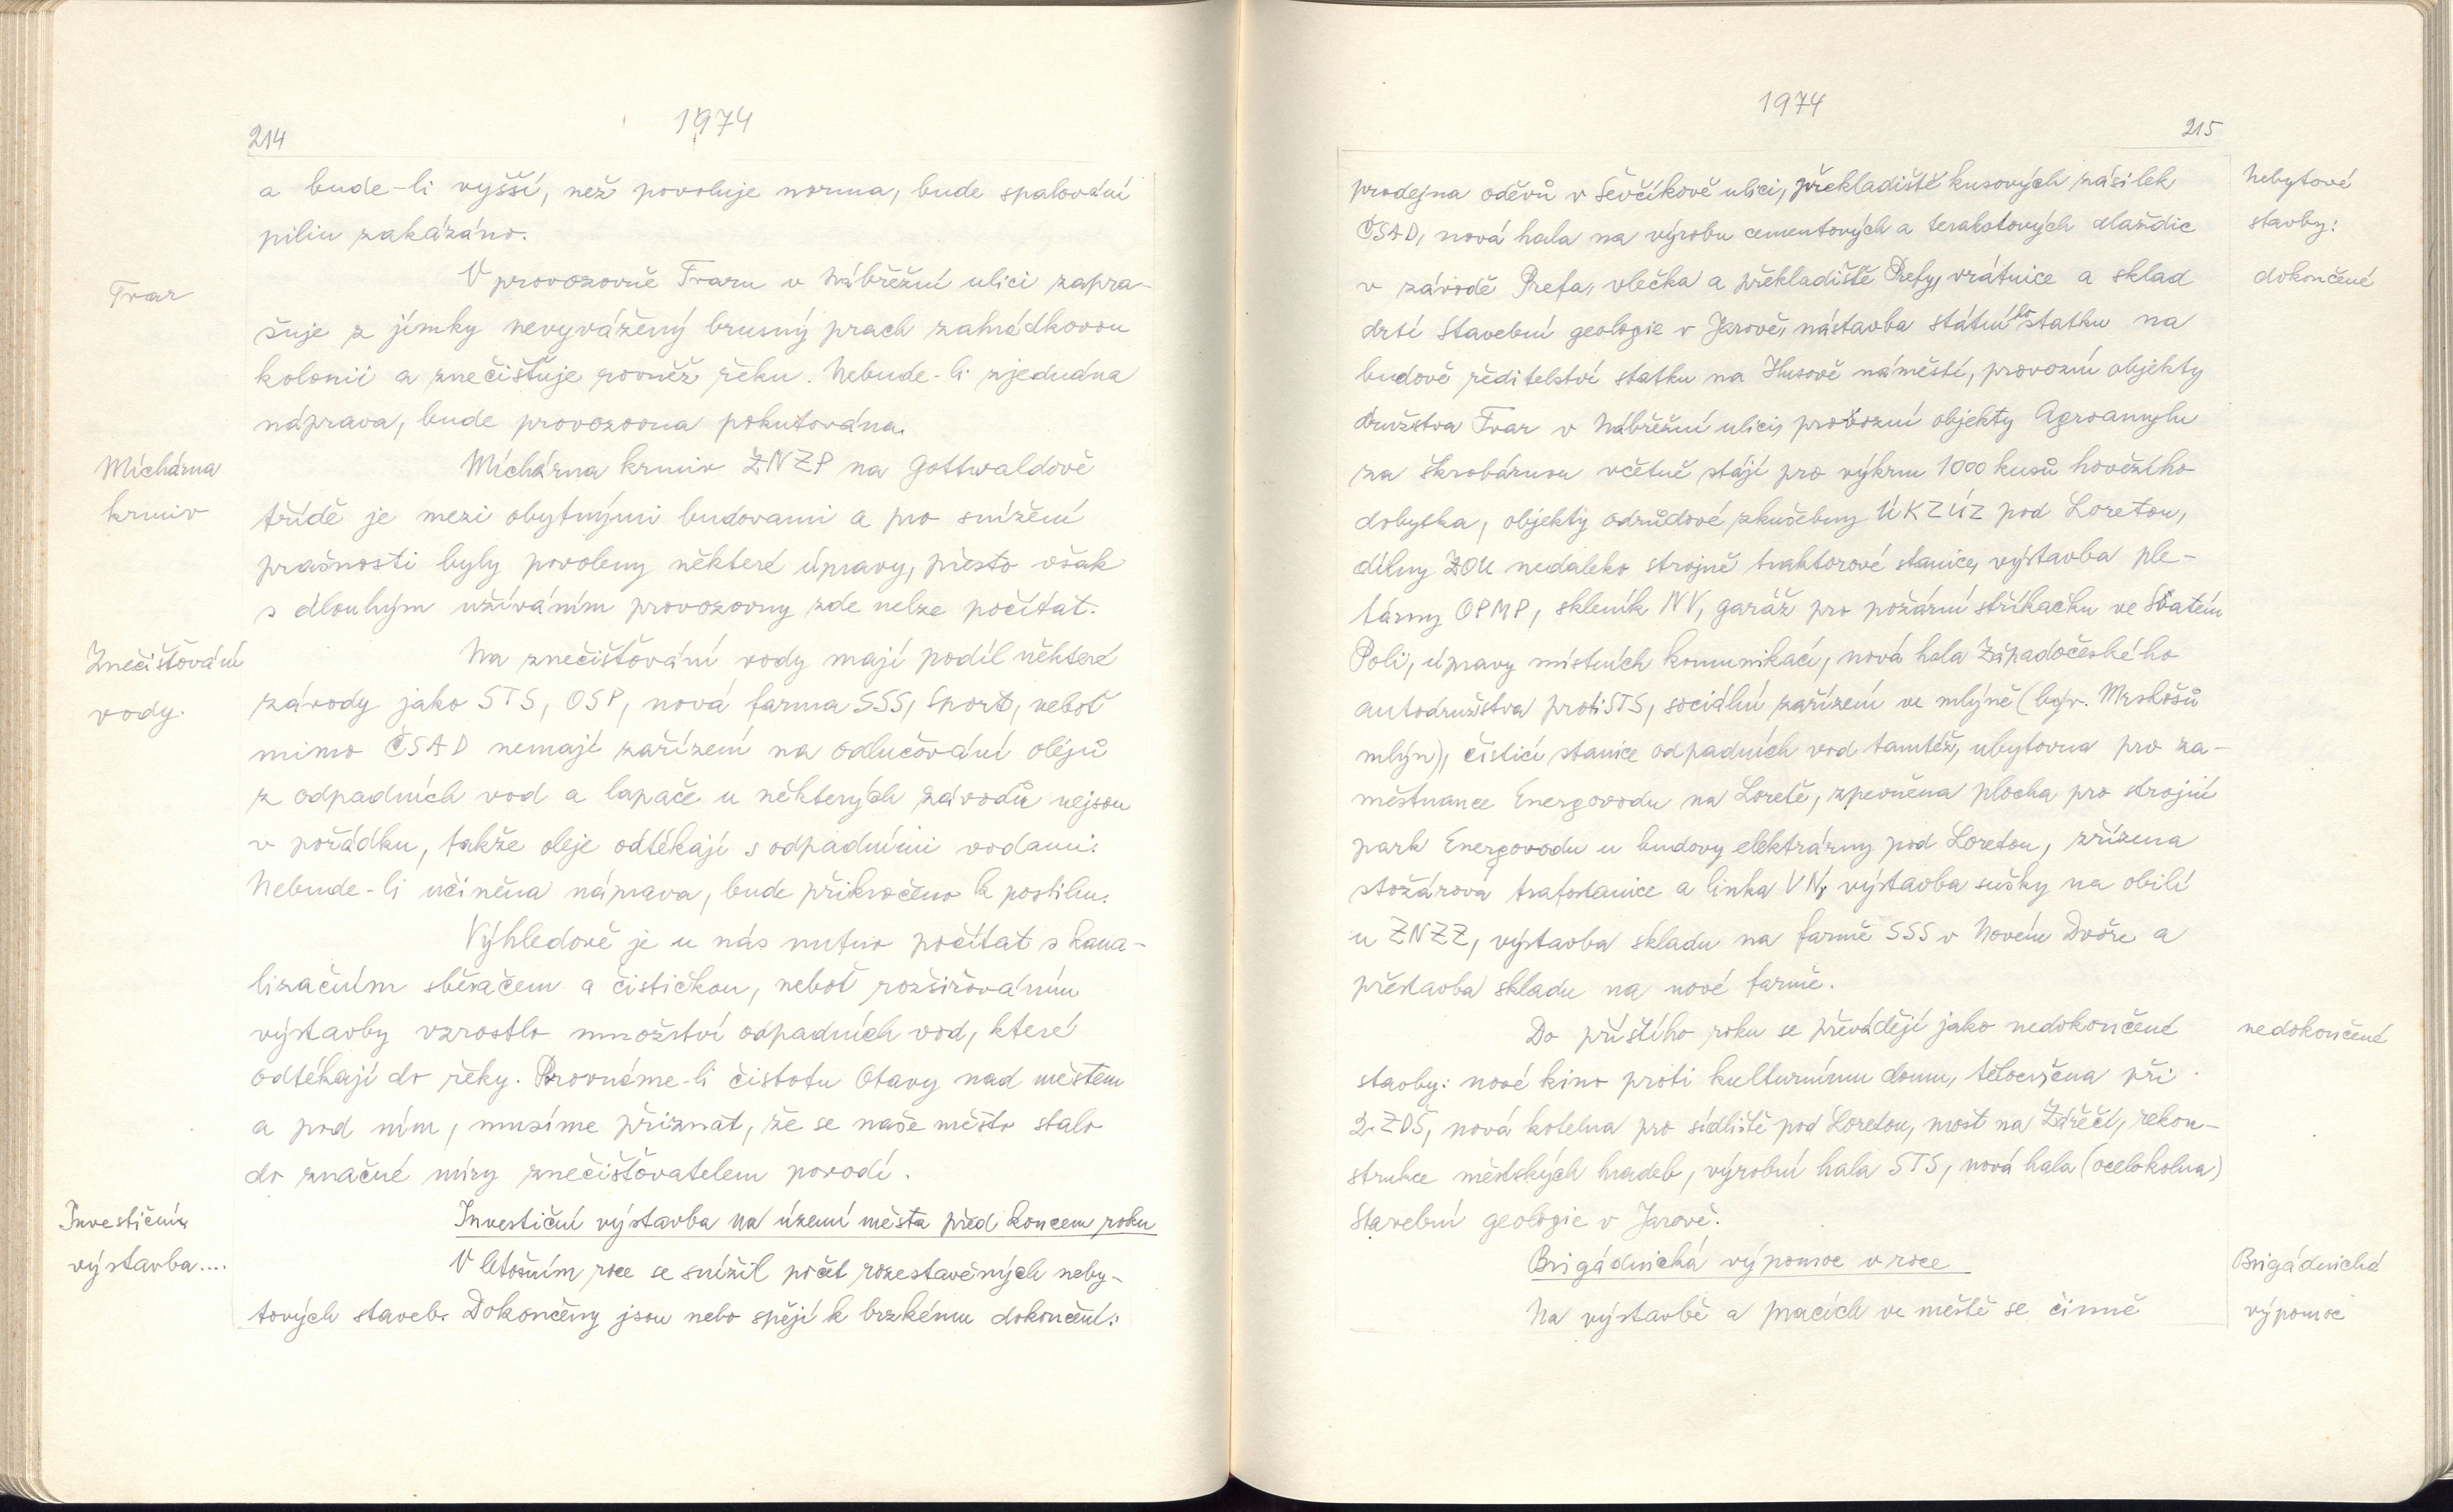 214
1974
a bude-li vyšší, než povoluje norma, bude spalování
pilin zakázáno.
Tvar
V provozovně Tvaru v Nábřežní ulici zapra-
šuje z jímky nevyvážený brusný prach zahrádkovou
kolonii a znečišťuje rovněž řeku. Nebude-li zjednána
náprava, bude provozovna pokutována.
Míchárna
krmiv
Míchárna krmiv ZNZP na Gottwaldově
třídě je mezi obytnými budovami a pro snížení
prašnosti byly povoleny některé úpravy, přesto však
s dlouhým užíváním provozovny zde nelze počítat.
Znečišťování
vody.
Na znečišťování vody mají podíl některé
závody jako STS, OSP, nová farma SSS, Sport, neboť
mimo ČSAD nemají zařízení na odlučování olejů
z odpadních vod a lapače u některých závodů nejsou
v pořádku, takže oleje odtékají s odpadními vodami.
Nebude-li učiněna náprava, bude přikročeno k postihu.
Výhledově je u nás nutno počítat s kana-
lizačním sběračem a čističkou, neboť rozšiřováním
výstavby vzrostlo množství odpadních vod, které
odtékají do řeky. Porovnáme-li čistotu Otavy nad městem
a pod ním, musíme přiznat, že se naše město stalo
do značné míry znečišťovatelem povodí.
Investiční
výstavba....
Investiční výstavba na území města před koncem roku
V letošním roce se snížil počet rozestavěných neby-
tových staveb. Dokončeny jsou nebo spějí k brzkému dokončení:
1974
215
prodejna oděvů v Ševčíkově ulici, překladiště kusových zásilek
ČSAD, nová hala na výrobu cementových a terakotových dlaždic
v závodě Prefa, vlečka a překladiště Prefy, vrátnice a sklad
drtí Stavební geologie v Jarově, nástavba státního statku na
budově ředitelství statku na Husově náměstí, provozní objekty
družstva Tvar v Nábřežní ulici, provozní objekty Agroamylu
za škrobárnou včetně stájí pro výkrm 1000 kusů hovězího
dobytka, objekty odrůdové zkušebny ÚKZÚZ pod Loretou,
dílny ZOU nedaleko strojně traktorové stanice, výstavba ple-
tárny OPMP, skleník NV, garáž pro požární stříkačku ve Svatém
Poli, úpravy místních komunikací, nová hala Západočeského
autodružstva proti STS, sociální zařízení ve mlýně (býv. Mrskošů
mlýn), čistící stanice odpadních vod tamtéž, ubytovna pro za-
městnance Energovodu na Loretě, zpevněná plocha pro strojní
park Energovodu u budovy elektrárny pod Loretou, zřízena
stožárová trafostanice a linka VN, výstavba sušky na obilí
u ZNZZ, výstavba skladu na farmě SSS v Novém Dvoře a
přestavba skladu na nové farmě.
Nebytové
stavby:
dokončené
Do příštího roku se převádějí jako nedokončené
stavby: nové kino proti kulturnímu domu, tělocvična při
2. ZDŠ, nová kotelna pro sídliště pod Loretou, most na Zářečí, rekon-
strukce městských hradeb, výrobní hala STS, nová hala (ocelokolna)
Stavební geologie v Jarově.
nedokončené
Brigádnická výpomoc v roce
Na výstavbě a pracích ve městě se činně
Brigádnická
výpomoc